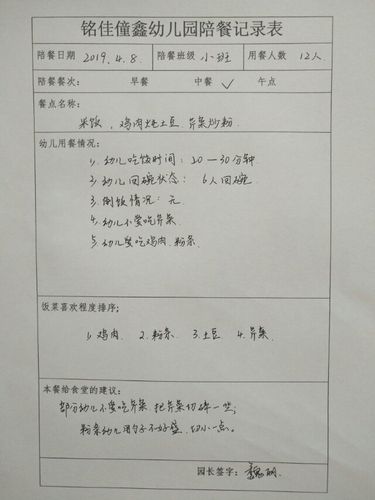 铭佳僮鑫幼儿园陪餐记录表
陪餐日期 2019.4.8. 陪餐班级 小班 用餐人数 12人
陪餐餐次： 早餐 中餐 ✓ 午点
餐点名称：
米饭、鸡肉炖土豆、芹菜炒粉
幼儿用餐情况：
1、幼儿吃饭时间：20—30分钟
2、幼儿回碗状态：6人回碗
3、倒饭情况：无
4、幼儿不爱吃芹菜
5、幼儿爱吃鸡肉、粉条
饭菜喜欢程度排序；
1、鸡肉 2.粉条 3.土豆 4.芹菜.
本餐给食堂的建议：
部分幼儿不爱吃芹菜 把芹菜切碎一些；
粉条幼儿用勺子不好盛，切小一点。
园长签字：魏丽